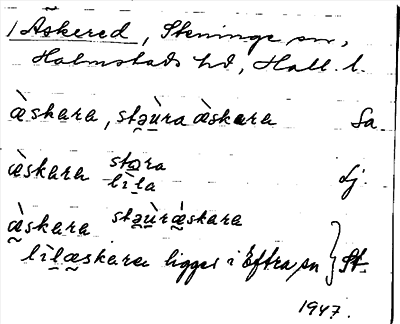 1 Askered, Skninge sn,
Halmstads hd, Hall. l.
æ̀skara, stəu̇̀ra æ̀skara Sa.
æ̀skara stora Lj.
lìla
æ̀skara stəùræ̀skara
lìlæskara ligger i Eftra sn } St.
1947.